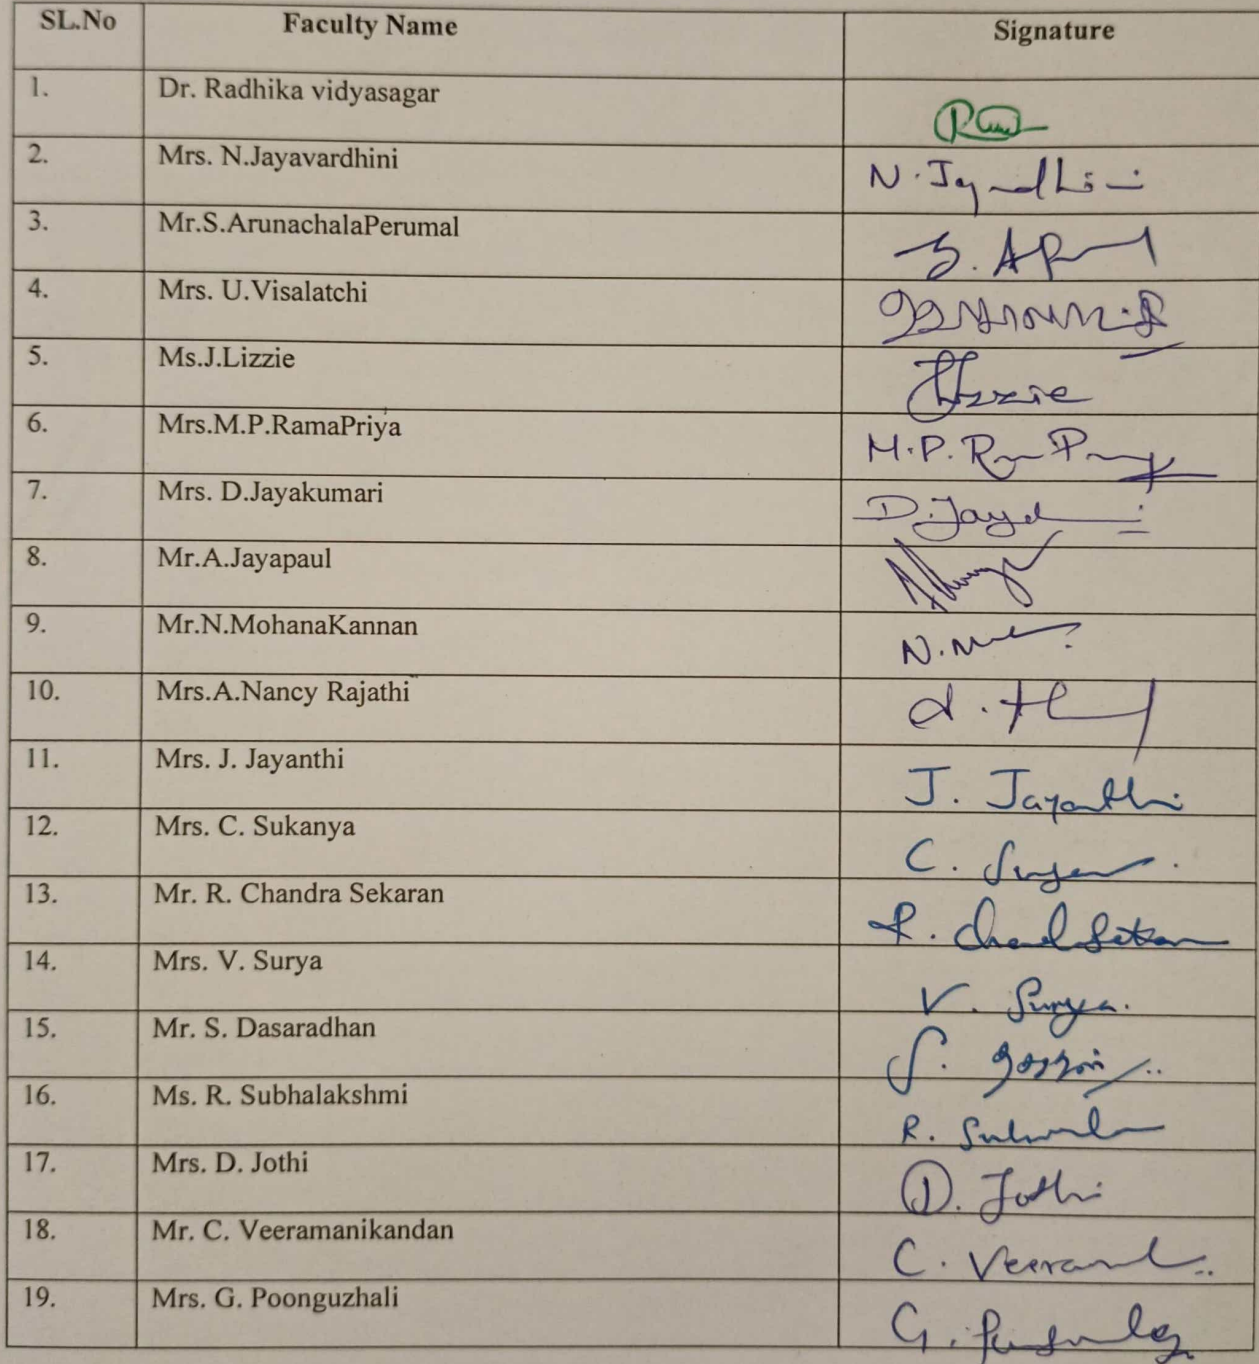 SL.No Faculty Name Signature
1. Dr. Radhika vidyasagar
2. Mrs. N.Jayavardhini N.
3. Mr.S.ArunachalaPerumal S.
4. Mrs. U.Visalatchi
5. Ms.J.Lizzie Lizzie
6. Mrs.M.P.RamaPriya M.P.
7. Mrs. D.Jayakumari D.
8. Mr.A.Jayapaul
9. Mr.N.MohanaKannan N.
10. Mrs.A.Nancy Rajathi
11. Mrs. J. Jayanthi J. Jayanthi
12. Mrs. C. Sukanya C.
13. Mr. R. Chandra Sekaran R.
14. Mrs. V. Surya V. Surya.
15. Mr. S. Dasaradhan S.
16. Ms. R. Subhalakshmi R.
17. Mrs. D. Jothi D. Jothi
18. Mr. C. Veeramanikandan C.
19. Mrs. G. Poonguzhali G.